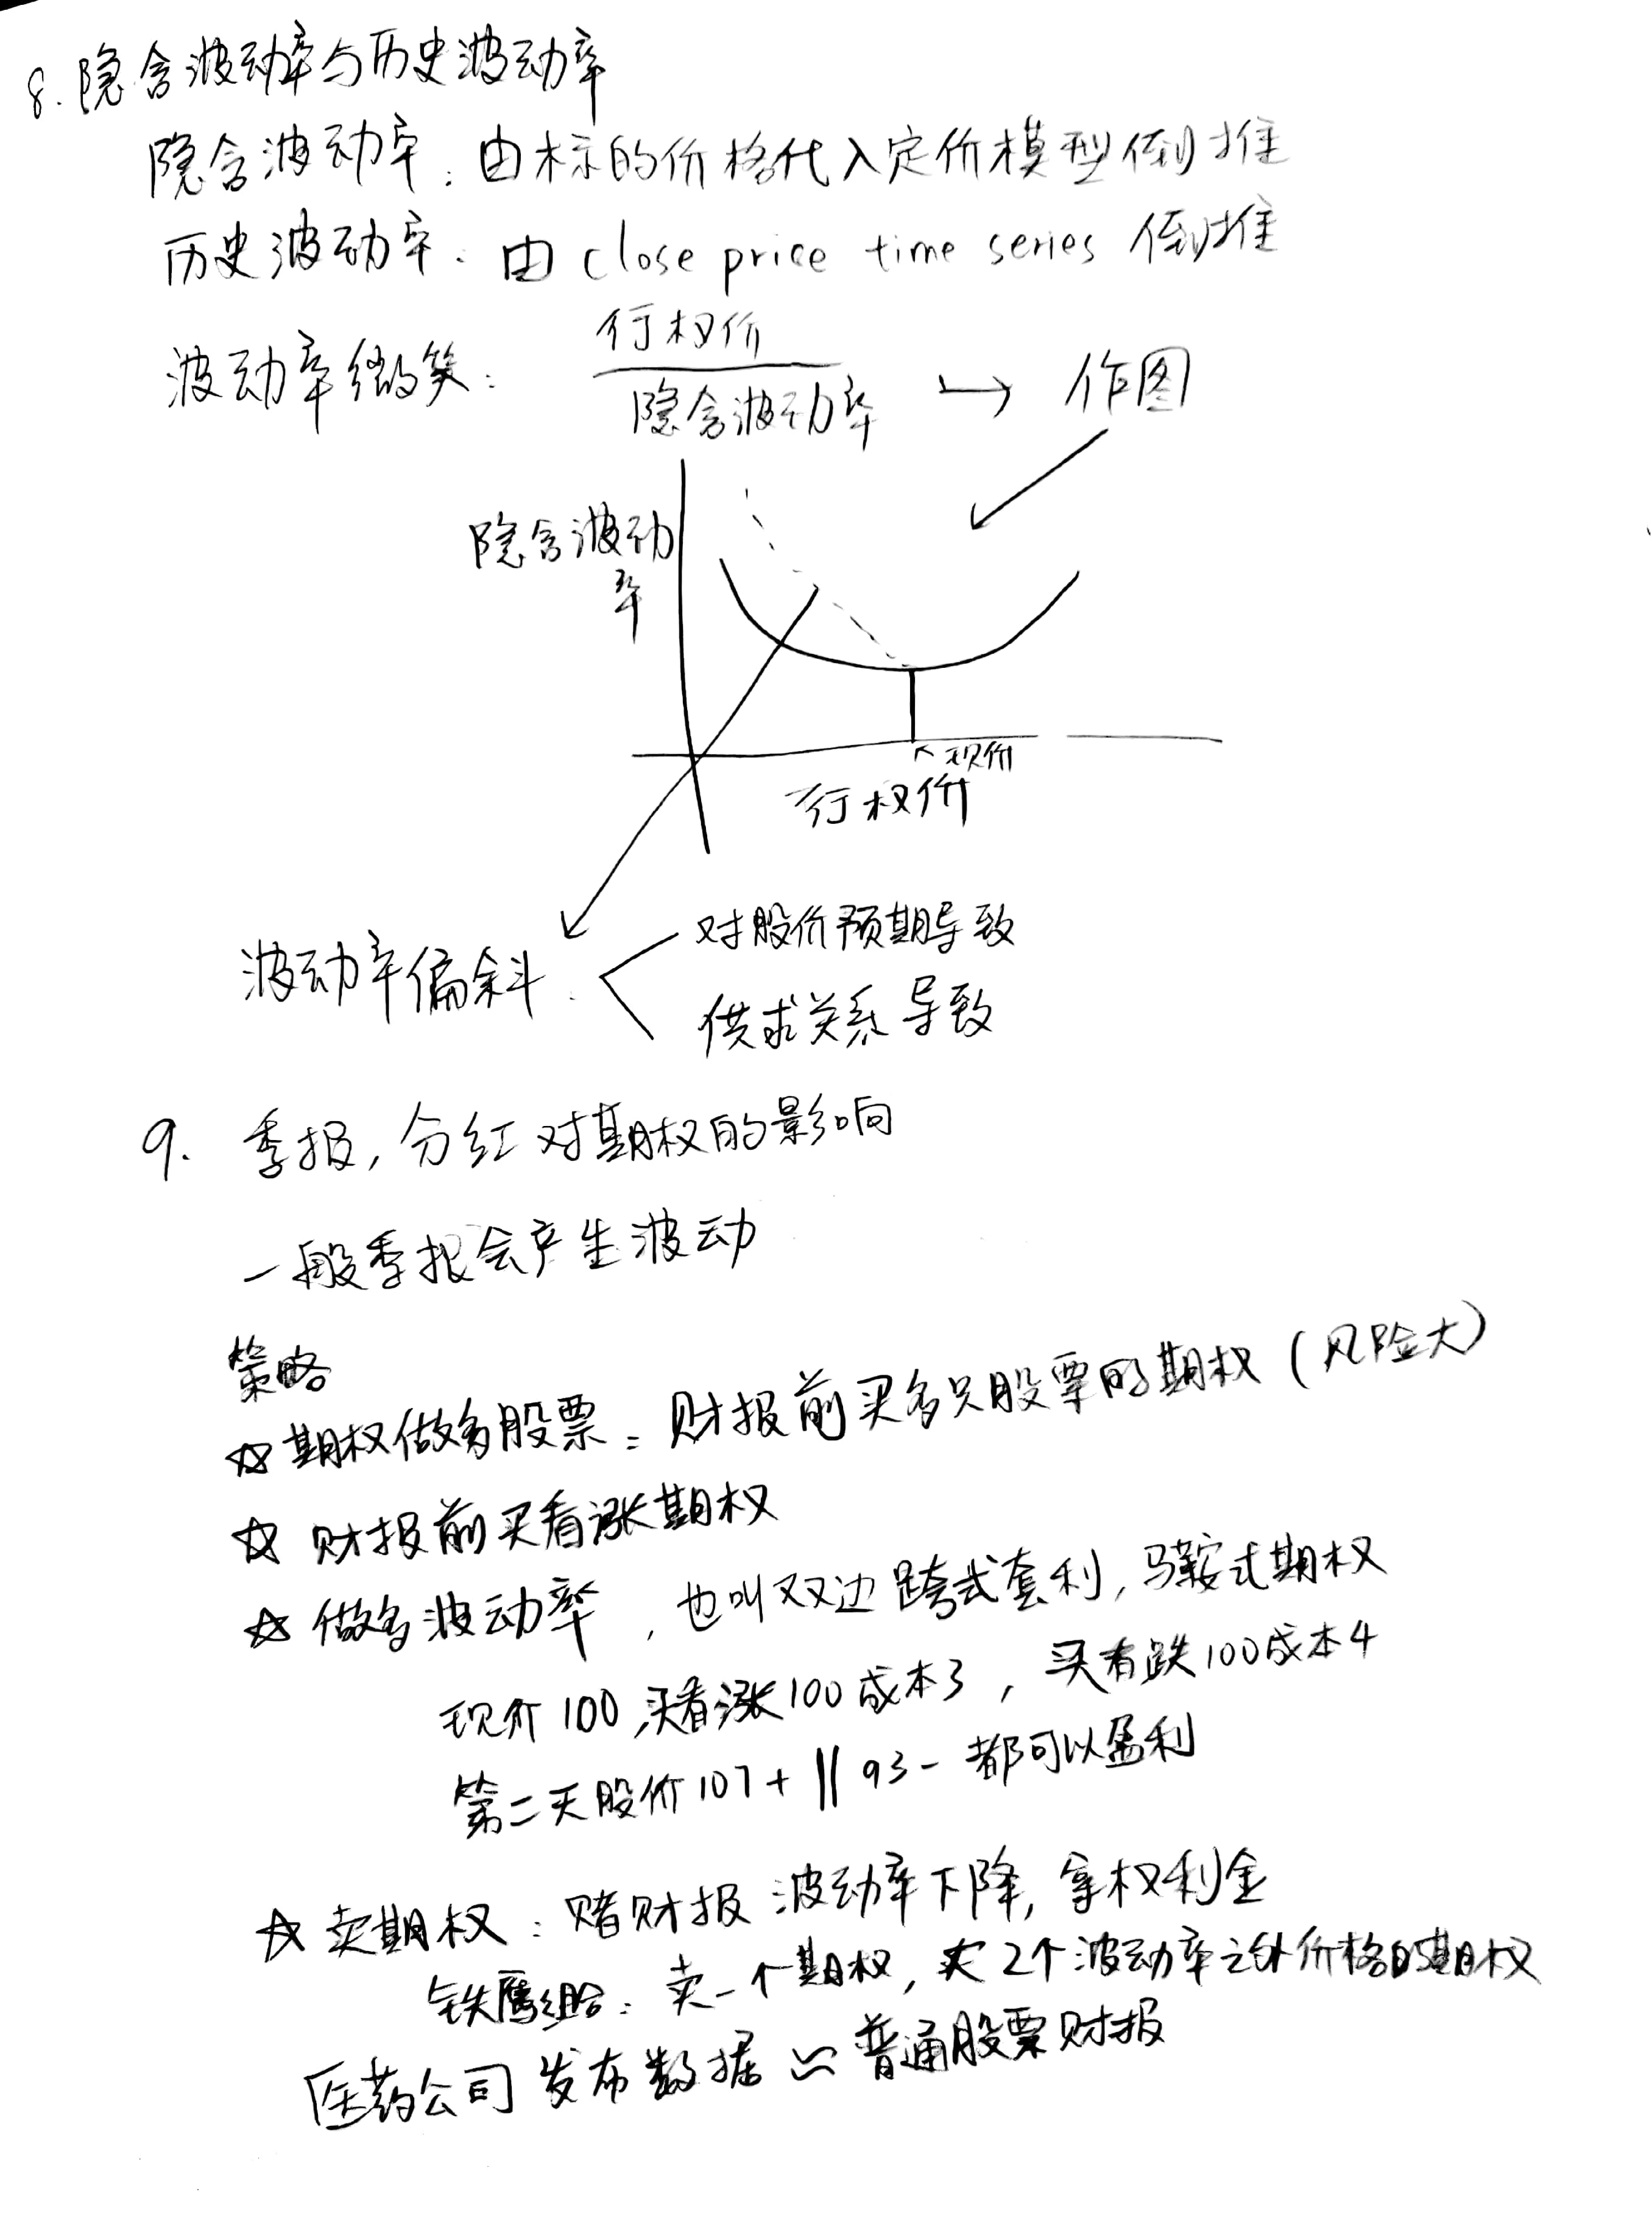 8. 隐含波动率与历史波动率
隐含波动率: 由标的价格代入定价模型倒推
历史波动率: 由 close price time series 倒推
波动率微笑: 行权价
隐含波动率 → 作图
隐含波动
率
↖现价
行权价
波动率偏斜:
对股价预期导致
供求关系导致
9. 季报, 分红对期权的影响
一般季报会产生波动
策略
☆ 期权做多股票: 财报前买多只股票的期权 (风险大)
☆ 财报前买看涨期权
☆ 做多波动率, 也叫双边跨式套利, 马鞍式期权
现价100, 买看涨100成本3, 买看跌100成本4
第二天股价107+ || 93- 都可以盈利
☆ 卖期权: 赌财报波动率下降, 拿权利金
铁鹰组合: 卖一个期权, 买2个波动率之外价格的期权
医药公司发布数据 ≈ 普通股票财报